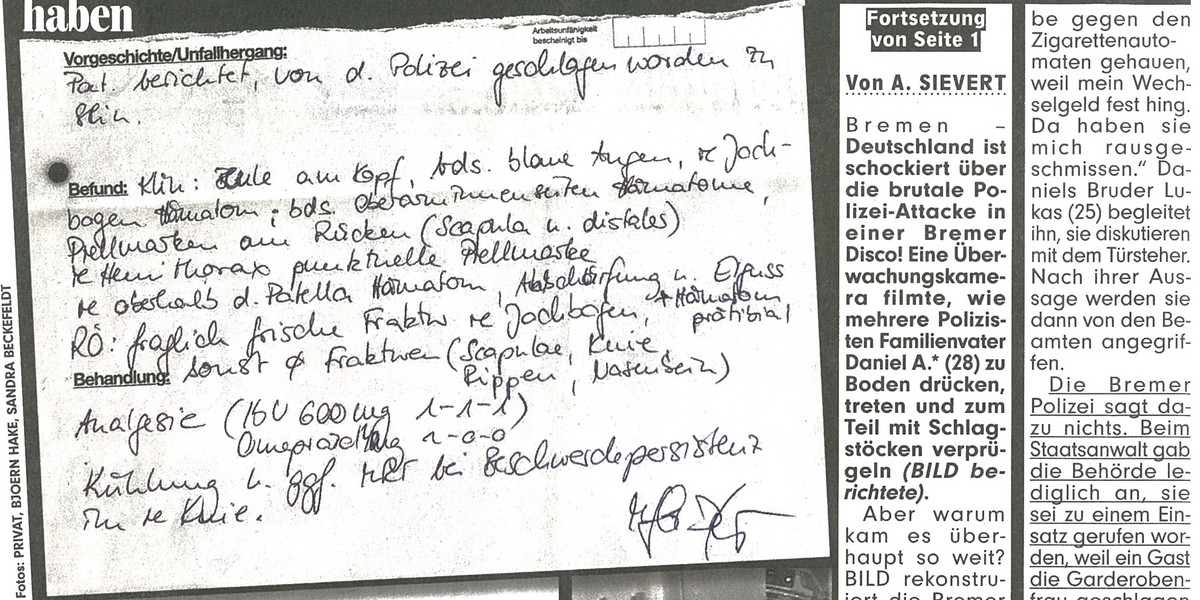 haben
Arbeitsunfähigkeit
bescheinigt bis
Vorgeschichte/Unfallhergang:
Pat. berichtet, von d. Polizei geschlagen worden zu
sein.
Befund: Klin: Beule am Kopf, bds. blaue Augen, re Joch-
bogen Hämatom; bds. Oberarminnenseiten Hämatome,
Prellmarken am Rücken (Scapula u. distales)
re Hemithorax punktuelle Prellmarke
re oberhalb d. Patella Hämatom, Abschürfung u. Erguss
+ Hämatom
prätibial
RÖ: fraglich frische Fraktur re Jochbogen,
Behandlung: sonst ∅ Frakturen (Scapulae, Knie,
Rippen, Nasenbein)
Analgesie (IBU 600mg 1-1-1)
1-0-0
Kühlung u. ggf. MRT bei Beschwerdepersistenz
im re Knie.
Fotos: PRIVAT, BJOERN HAKE, SANDRA BECKEFELDT
Fortsetzung
von Seite 1
Von A. SIEVERT
Bremen –
Deutschland ist
schockiert über
die brutale Po-
lizei-Attacke in
einer Bremer
Disco! Eine Über-
wachungskame-
ra filmte, wie
mehrere Polizis-
ten Familienvater
Daniel A.* (28) zu
Boden drücken,
treten und zum
Teil mit Schlag-
stöcken verprü-
geln (BILD be-
richtete).
Aber warum
kam es über-
haupt so weit?
BILD rekonstru-
iert die Bremer
be gegen den
Zigarettenauto-
maten gehauen,
weil mein Wech-
selgeld fest hing.
Da haben sie
mich rausge-
schmissen.“ Da-
niels Bruder Lu-
kas (25) begleitet
ihn, sie diskutieren
mit dem Türsteher.
Nach ihrer Aus-
sage werden sie
dann von den Be-
amten angegrif-
fen.
Die Bremer
Polizei sagt da-
zu nichts. Beim
Staatsanwalt gab
die Behörde le-
diglich an, sie
sei zu einem Ein-
satz gerufen wor-
den, weil ein Gast
die Garderoben-
frau geschlagen